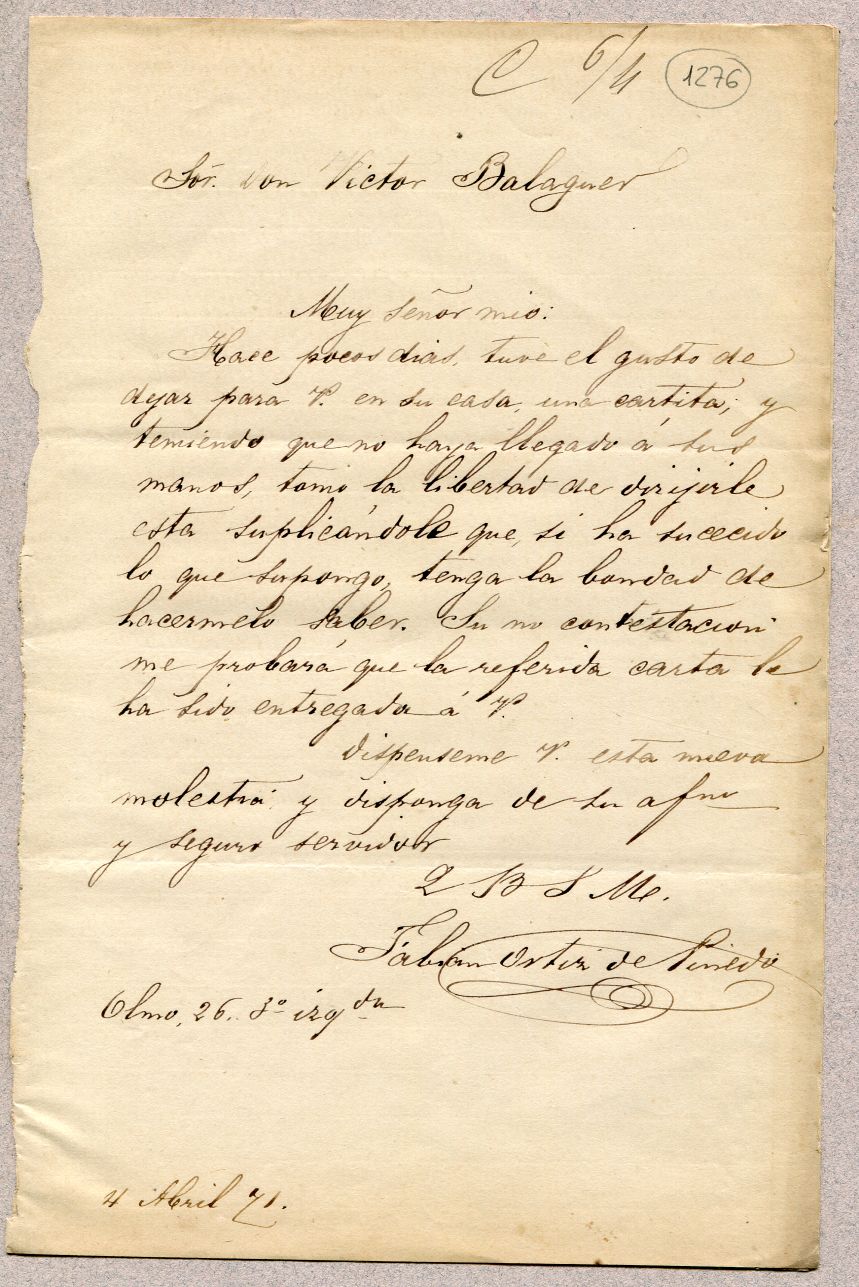 C 6/4 1276
Sór. don Victor Balaguer
Muy señor mio:
Hace pocos dias, tuve el gusto de
dejar para V. en su casa, una cartita; y
temiendo que no haya llegado á sus
manos, tomo la libertad de dirijirle
esta suplicándole que, si ha sucecido
lo que supongo, tenga la bondad de
hacermelo saber. Su no contestacion
me probará que la referida carta le
ha sido entregada á V.
Dispenseme V. esta nueva
molestia y disponga de su afmo
y seguro servidor
Q B S M.
Fabian Ortiz de Pinedo
Olmo, 26. 3º izqda
4 Abril 71.